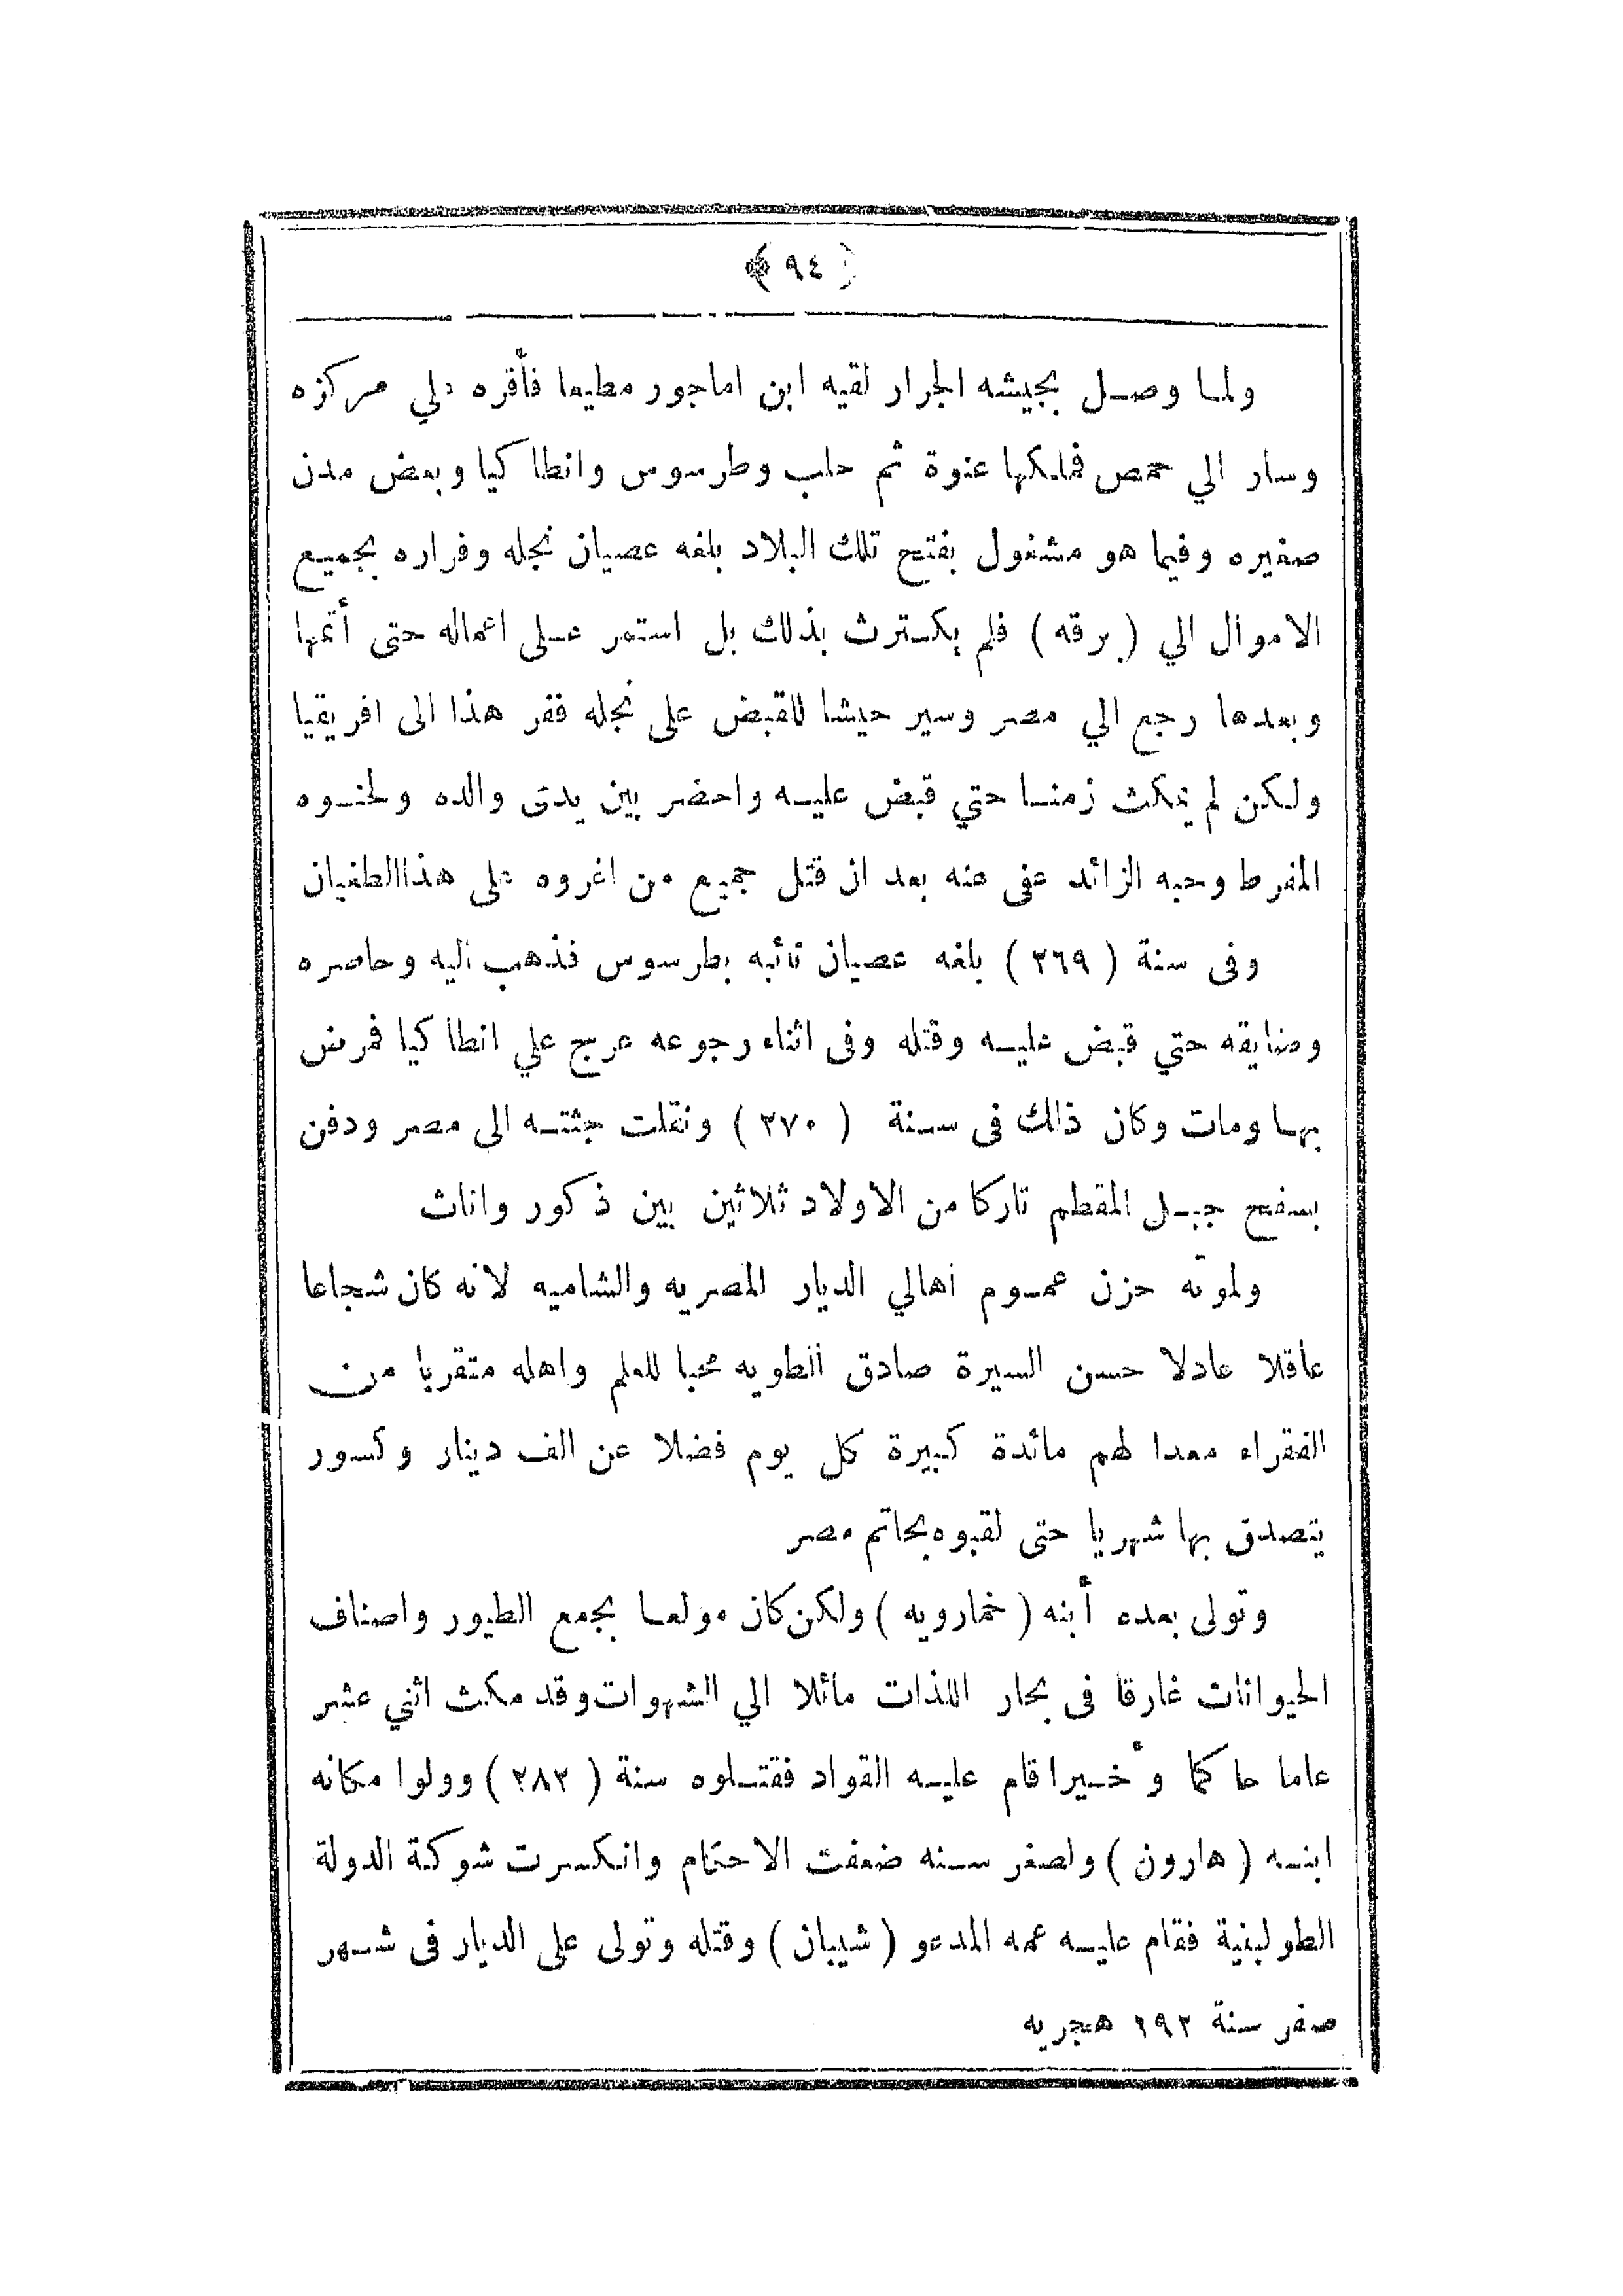 ﴿ ٩٤ ﴾
ولما وصل بجيشه الجرار لقيه ابن اماجور مطيعا فأقره على مركزه
وسار الي حمص فملكها عنوة ثم حلب وطرسوس وانطا كيا وبعض مدن
صغيره وفيما هو مشغول بفتح تلك البلاد بلغه عصيان نجله وفراره بجميع
الاموال الي ( برقه ) فلم يكترث بذلك بل استمر على اعماله حتى أتمها
وبعدها رجع الي مصر وسير جيشا للقبض على نجله ففر هذا الى افريقيا
ولكن لم يمكث زمنا حتي قبض عليه واحضر بين يدى والده ولحنوه
المفرط وحبه الزائد عفى عنه بعد ان قتل جميع من اغروه على هذا الطغيان
وفى سنة ( ٢٦٩ ) بلغه عصيان نائبه بطرسوس فذهب اليه وحاصره
وضايقه حتي قبض عليه وقتله وفى اثناء رجوعه عرج علي انطا كيا فمرض
بها ومات وكان ذالك فى سنة ( ٢٧٠ ) ونقلت جثته الى مصر ودفن
بسفح جبل المقطم تاركا من الاولاد ثلاثين بين ذكور واناث
ولموته حزن عموم اهالي الديار المصريه والشاميه لانه كان شجاعا
عاقلا عادلا حسن السيرة صادق الطويه محبا للعلم واهله متقربا من
الفقراء معدا لهم مائدة كبيرة كل يوم فضلا عن الف دينار وكسور
يتصدق بها شهريا حتى لقبوه بحاتم مصر
وتولى بعده أبنه ( خمارويه ) ولكن كان مولعا بجمع الطيور واصناف
الحيوانات غارقا فى بحار اللذات مائلا الي الشهوات وقد مكث اثني عشر
عاما حاكما وأخيرا قام عليه القواد فقتلوه سنة ( ٢٨٣ ) وولوا مكانه
ابنه ( هارون ) ولصغر سنه ضعفت الاحكام وانكسرت شوكة الدولة
الطولينية فقام عليه عمه المدعو ( شيبان ) وقتله وتولى على الديار فى شهر
صفر سنة ٢٩٢ هجريه